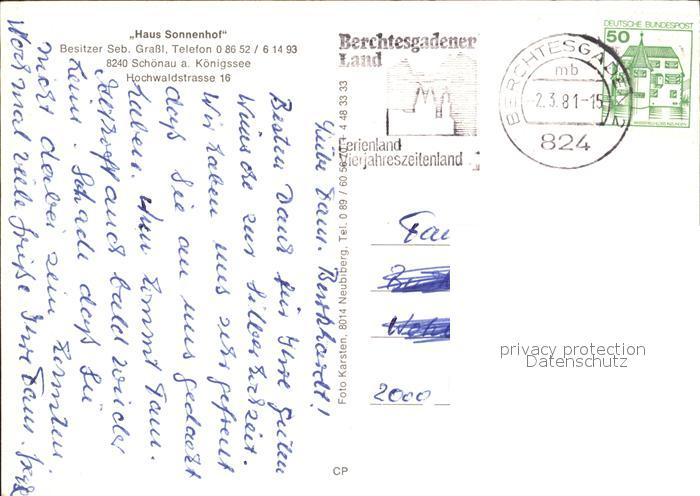 „Haus Sonnenhof“
Besitzer Seb. Graßl, Telefon 0 86 52 / 6 14 93
8240 Schönau a. Königssee
Hochwaldstrasse 16
Liebe Fam. Burkhardt!
Besten Dank für Ihre guten
Wünsche zur Silberhochzeit.
Wir haben uns sehr gefreut
daß Sie an uns gedacht
haben. Nun kommt Fam.
auch bald wieder
Schade daß Sie
nicht dabei sein konnten
Noch mal viele Grüße Ihre Fam.
Foto Karsten, 8014 Neubiberg, Tel. 0 89 / 60 4 48 33 33
CP
Berchtesgadener
Land
Ferienland
Vierjahreszeitenland
BERCHTESGADEN 2
mb
-2.3.81-15
824
DEUTSCHE BUNDESPOST
50
2000
privacy protection
Datenschutz